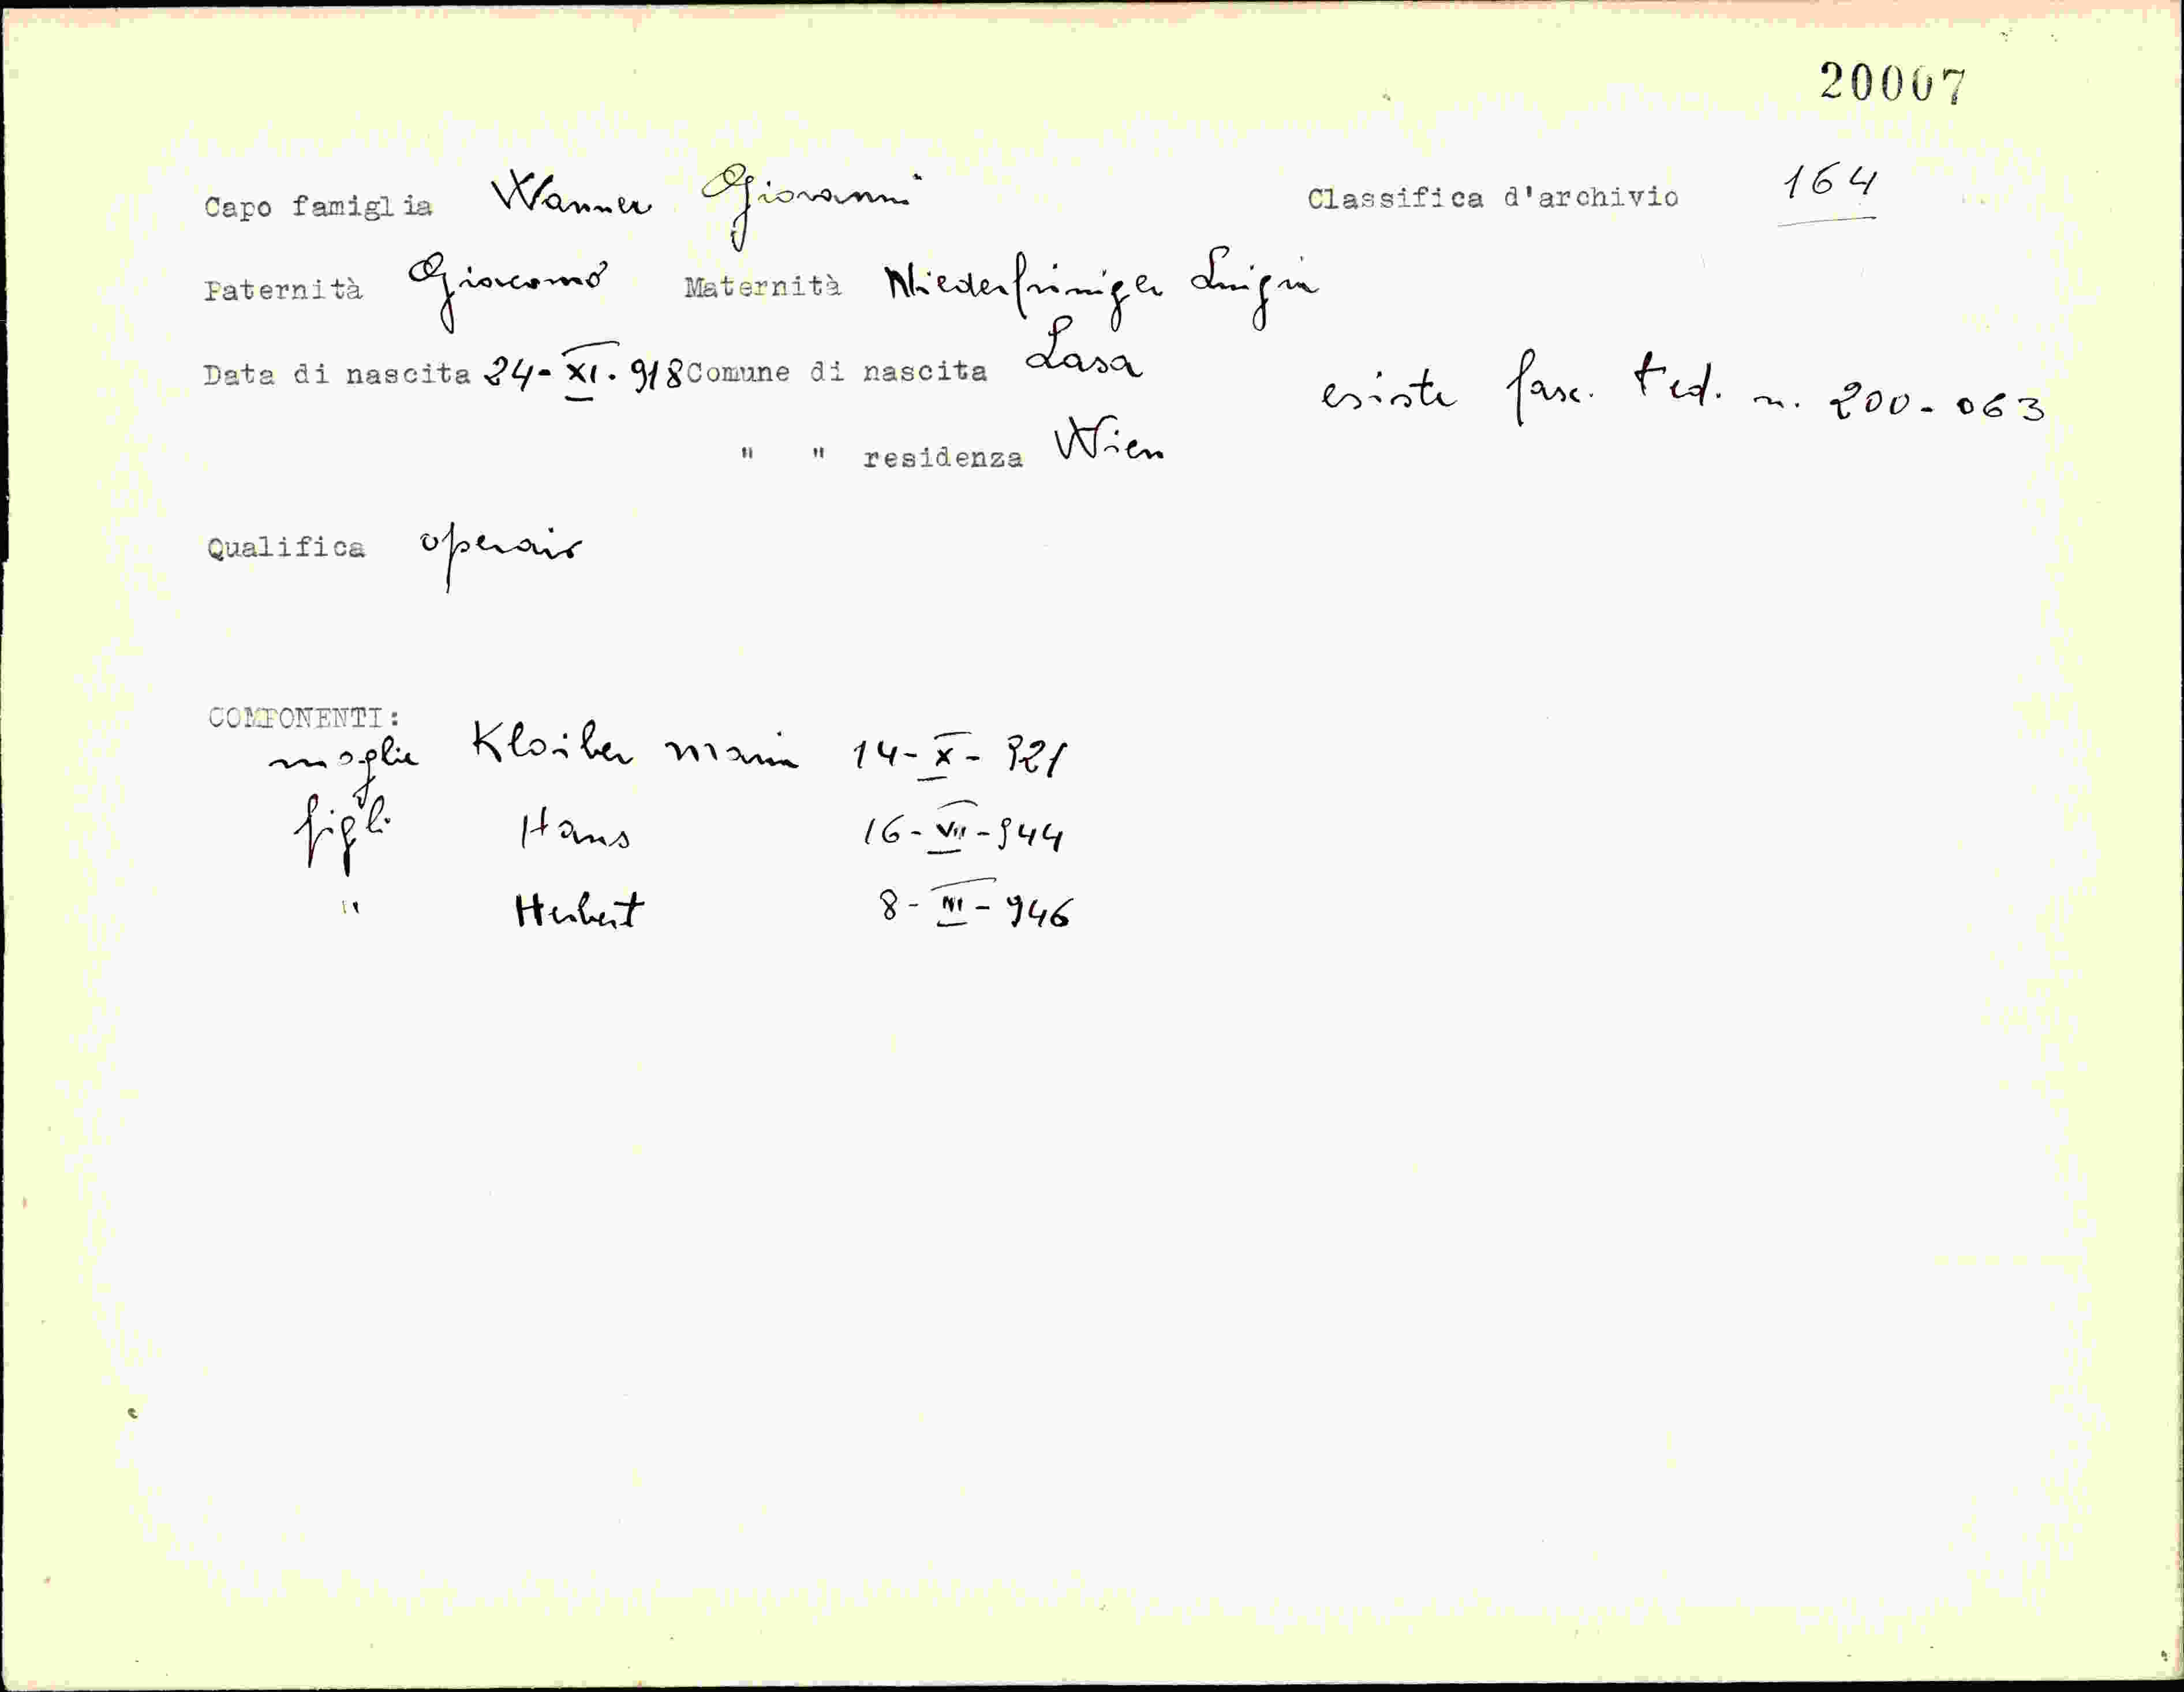 20007
Capo famiglia Wanner Giovanni Classifica d'archivio 164
Paternità Giacomo Maternità Niederfriniger Luigia
Data di nascita 24-XI.918 Comune di nascita Lasa
esiste fasc. ted. n. 200-063
" " residenza Wien
Qualifica operaio
COMPONENTI:
moglie Kloiber Maria 14-X-921
figli Hans 16-VII-944
" Herbert 8- -946